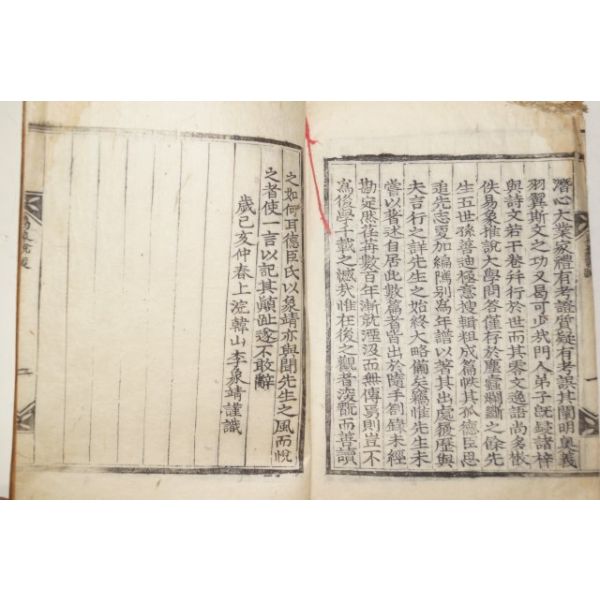 潛心大業家禮有考證質疑有考誤其闡明奧義
羽翼斯文之功又曷可少哉門人弟子旣鋟諸梓
與詩文若干卷幷行於世而其零文逸語尙多散
佚易象推說大學問答僅存於塵蠹斷之餘先
生五世孫善迪極意搜輯粗成篇帙其孤德臣思
追先志更加編別爲年譜以著其出處履歷與
夫言行之詳先生之始終大略備矣竊惟先生未
嘗以著述自居此數篇者皆出於隨手箚錄未經
勘定然荏苒數百年漸就湮汲而無傳焉則豈不
爲後學千載之憾哉惟在後之觀者淺而善讀
之如何耳德臣氏以象靖亦與聞先生之風而悅
之者使一言以記其顚趾遂不敢辭
歲己亥仲春上浣韓山李象靖謹識
一
二